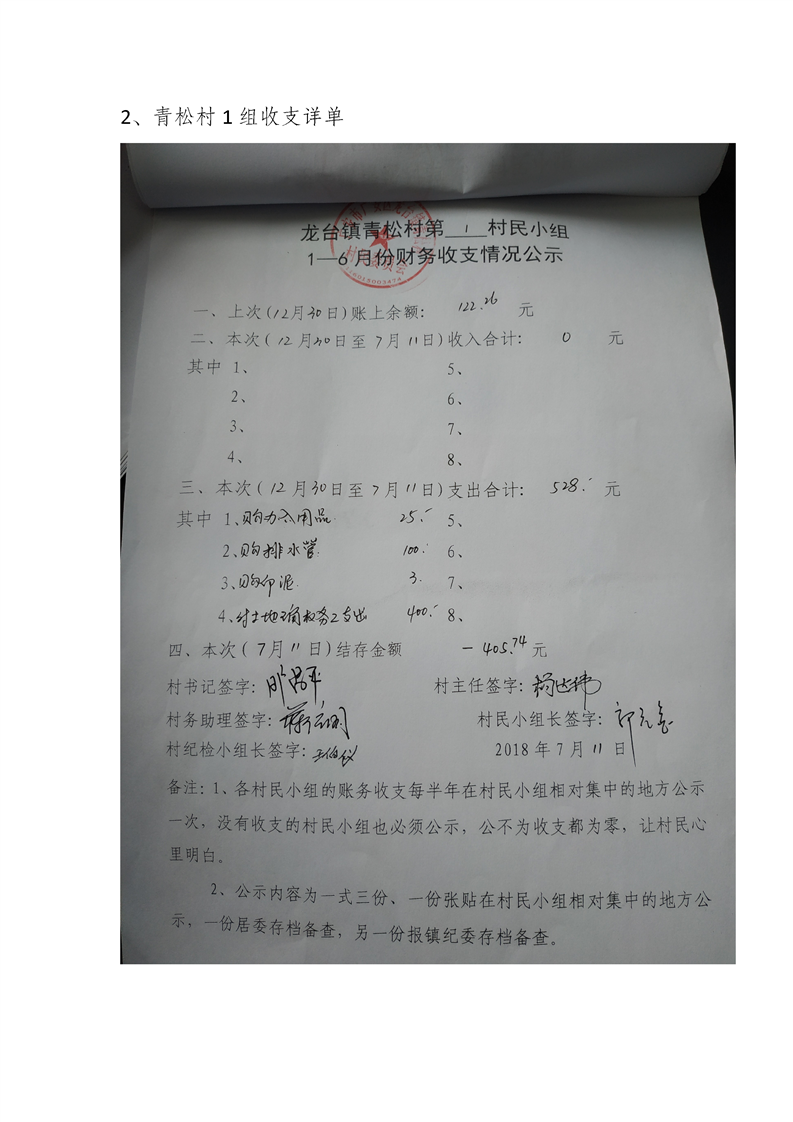 2、青松村1组收支详单
龙台镇青松村第 1 村民小组
1—6月份财务收支情况公示
一、上次(12月30日)账上余额: 122.26 元
二、本次(12月30日至7月11日)收入合计: 0 元
其中 1、 5、
2、 6、
3、 7、
4、 8、
三、本次(12月30日至7月11日)支出合计: 528.- 元
其中 1、购办公用品 25.- 5、
2、购排水管 100.- 6、
3、购印泥 3. 7、
4、付土地确权务工支出 400.- 8、
四、本次(7月11日)结存金额 -405.74元
村书记签字:
村主任签字:
村务助理签字:
村民小组长签字:
村纪检小组长签字:
2018年7月11日
备注:1、各村民小组的账务收支每半年在村民小组相对集中的地方公示
一次,没有收支的村民小组也必须公示,公不为收支都为零,让村民心
里明白。
2、公示内容为一式三份、一份张贴在村民小组相对集中的地方公
示,一份居委存档备查,另一份报镇纪委存档备查。